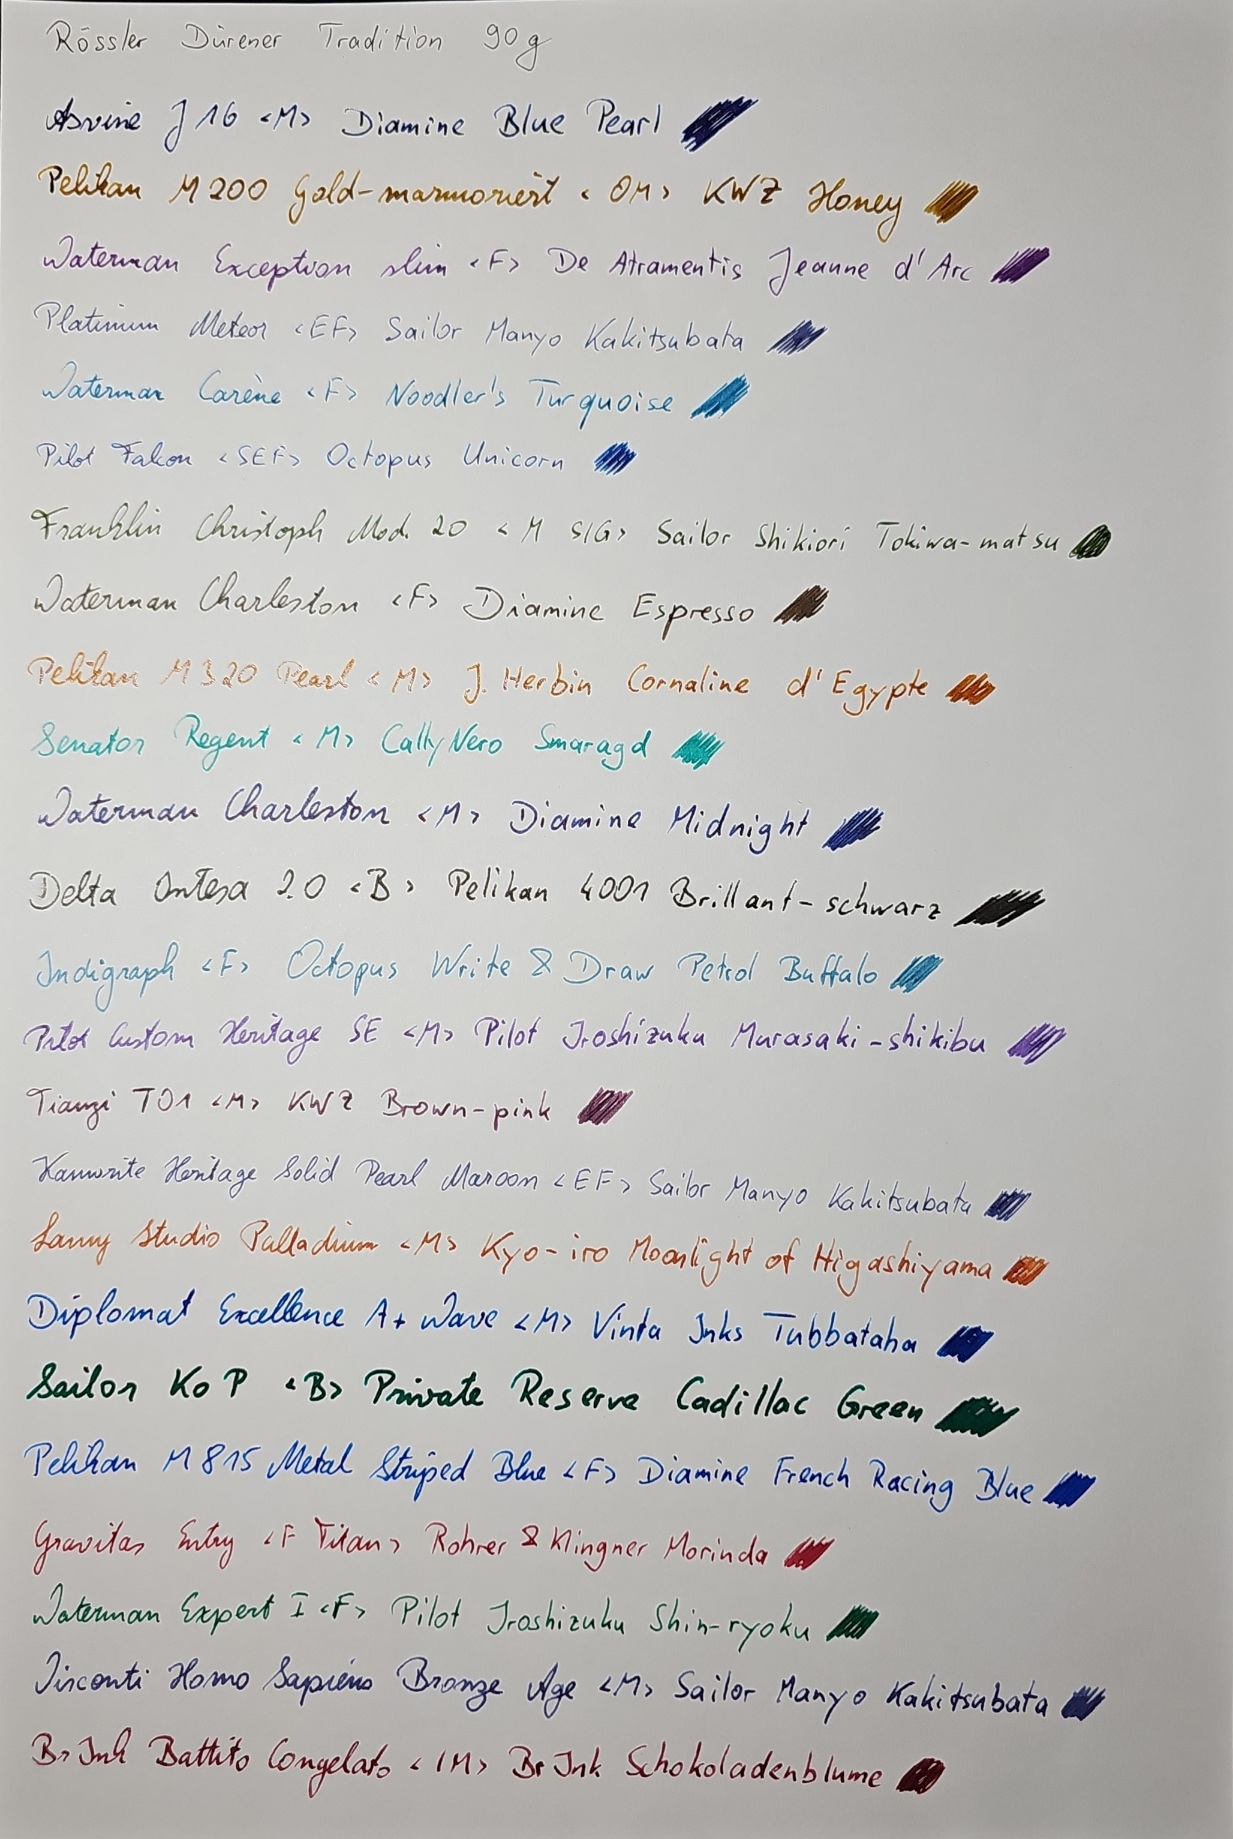 Rössler Dürener Tradition 90g
Asvine J16 <M> Diamine Blue Pearl
Pelikan M200 Gold-marmoriert <OM> KWZ Honey
Waterman Exception slim <F> De Atramentis Jeanne d'Arc
Platinum Meteor <EF> Sailor Manyo Kakitsubata
Waterman Carène <F> Noodler's Turquoise
Pilot Falcon <SEF> Octopus Unicorn
Franklin Christoph Mod. 20 <M SIG> Sailor Shikiori Tokiwa-matsu
Waterman Charleston <F> Diamine Espresso
Pelikan M320 Pearl <M> J. Herbin Cornaline d'Egypte
Senator Regent <M> CallyNero Smaragd
Waterman Charleston <M> Diamine Midnight
Delta Intesa 2.0 <B> Pelikan 4001 Brillant-schwarz
Indigraph <F> Octopus Write & Draw Petrol Buffalo
Pilot Custom Heritage SE <M> Pilot Iroshizuku Murasaki-shikibu
Tianzi T01 <M> KWZ Brown-pink
Kanwrite Heritage Solid Pearl Maroon <EF> Sailor Manyo Kakitsubata
Lamy Studio Palladium <M> Kyo-iro Moonlight of Higashiyama
Diplomat Excellence A+ Wave <M> Vinta Inks Tubbataha
Sailor KoP <B> Private Reserve Cadillac Green
Pelikan M815 Metal Striped Blue <F> Diamine French Racing Blue
Gravitas Entry <F Titan> Rohrer & Klingner Morinda
Waterman Expert I <F> Pilot Iroshizuku Shin-ryoku
Visconti Homo Sapiens Bronze Age <M> Sailor Manyo Kakitsubata
BrInk Battito Congelato <IM> BrInk Schokoladenblume